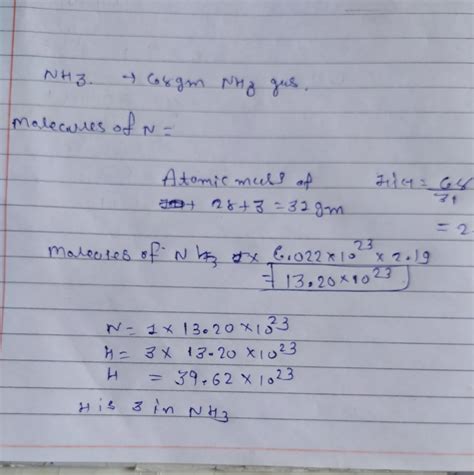 NH3. → 68gm NH3 gas.
Molecules of N =
Atomic mass of मोल = 68
28+3 = 32gm 31
= 2.
Molecules of NH3 6.022×10²³ × 2.19
= 13.20×10²³
N = 1 × 13.20×10²³
H = 3 × 13.20×10²³
H = 39.62×10²³
H is 3 in NH3